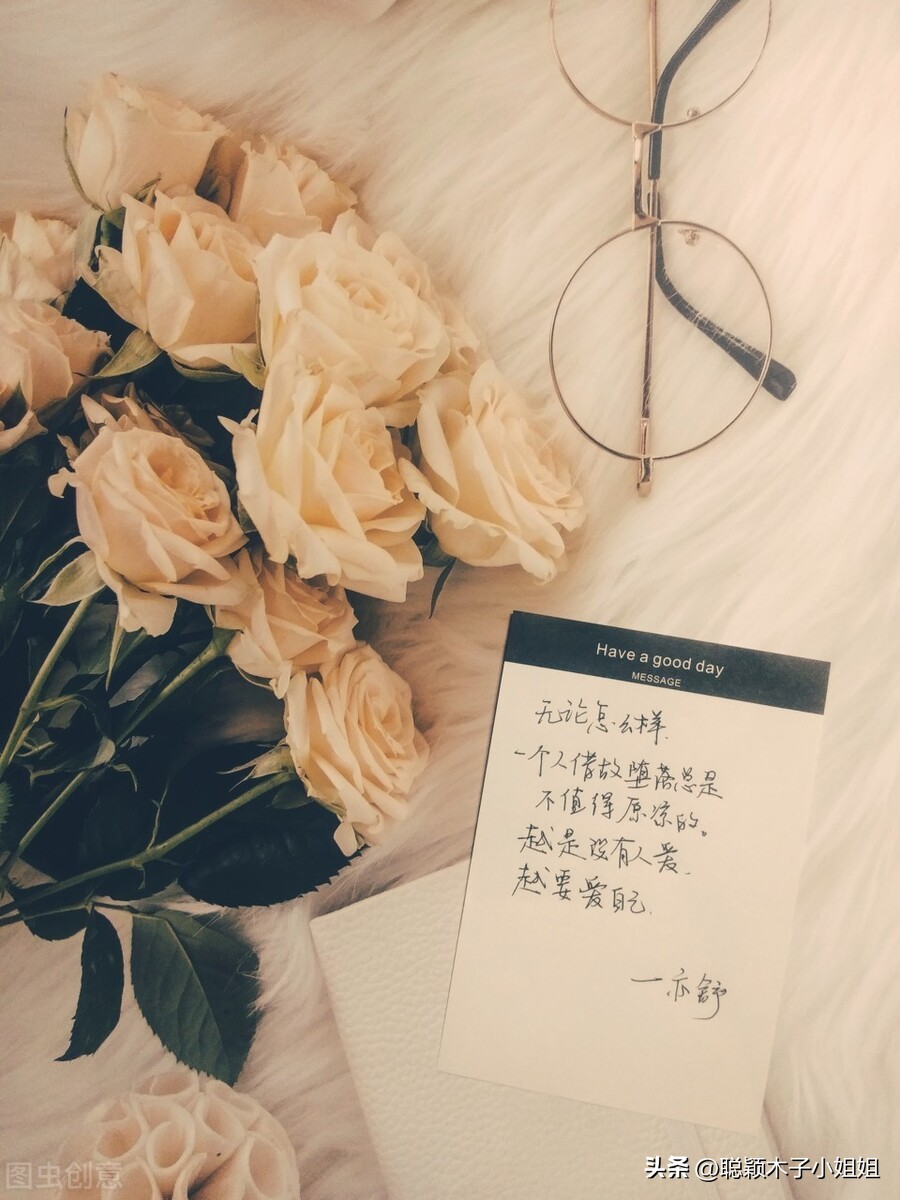 Have a good day
MESSAGE
无论怎么样
一个人借故堕落总是
不值得原谅的。
越是没有人爱
越要爱自己
一亦舒
图虫创意
头条 @聪颖木子小姐姐